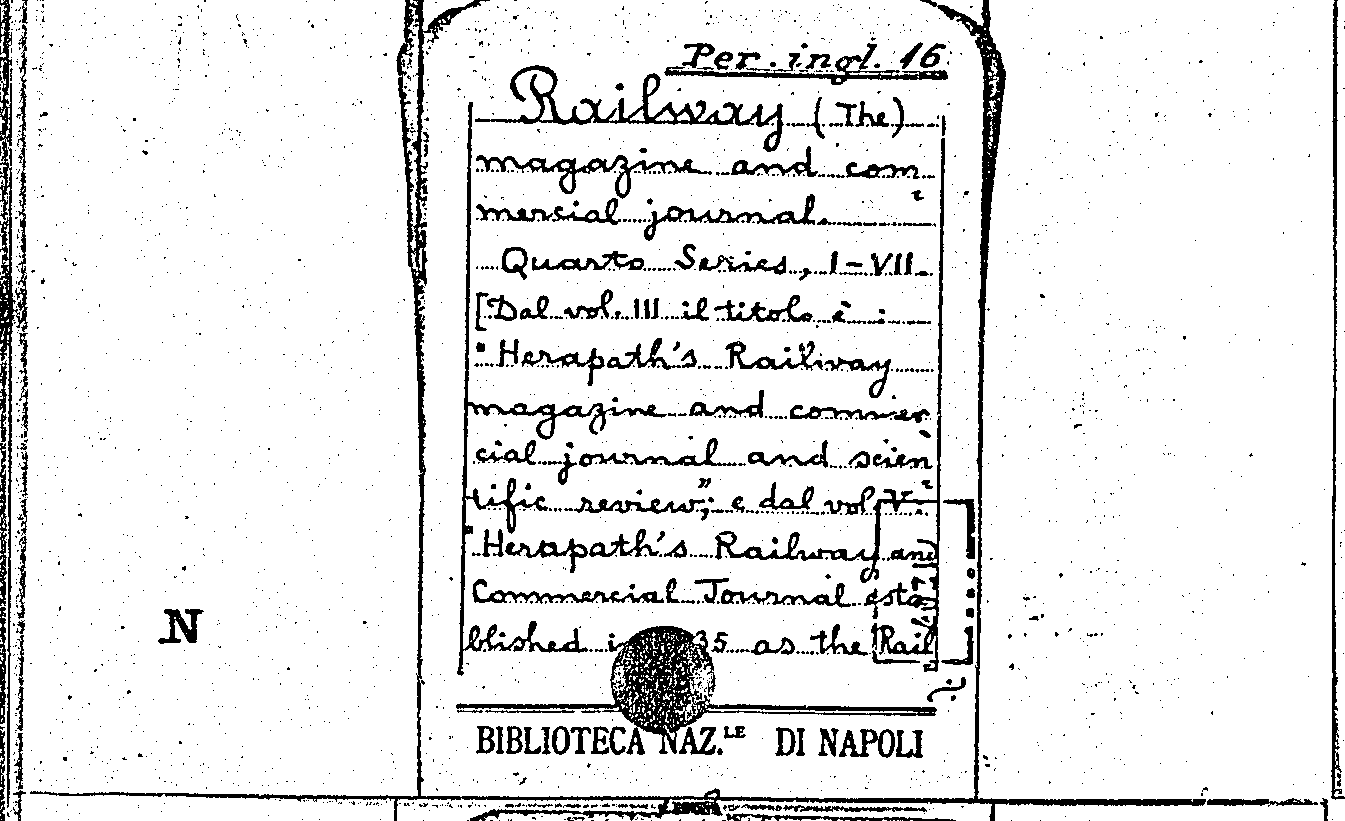 Per. ingl. 16
Railway (The)
magazine and com
mercial journal.
Quarto Series, I-VII.
[Dal vol. III il titolo è :
"Herapath's Railway
magazine and commer
cial journal and scien
tific review"; e dal vol. V:
"Herapath's Railway and
Commercial Journal esta
blished i 35 as the Rail
N
BIBLIOTECA NAZ.LE DI NAPOLI